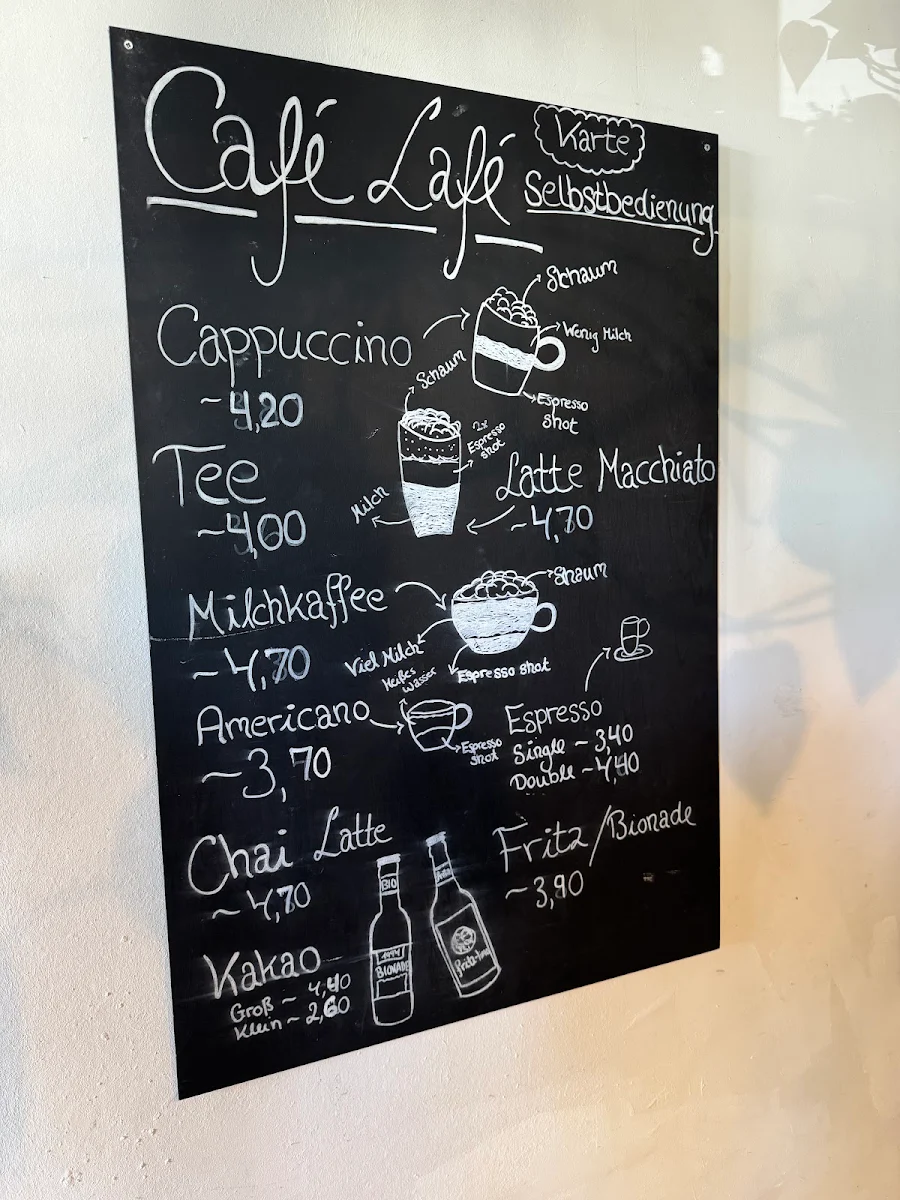 Café Lafé
Karte
Selbstbedienung
Cappuccino
~ 4,20
Schaum
Wenig Milch
Espresso
shot
Tee
~ 4,00
Schaum
2x
Espresso
shot
Milch
Latte Macchiato
~ 4,70
Milchkaffee
~ 4,70
Shaum
Viel Milch
Espresso shot
Americano
~ 3,70
Heißes
Wasser
Espresso
shot
Espresso
Single ~ 3,40
Double ~ 4,40
Chai Latte
~ 4,70
Fritz/Bionade
~ 3,90
BIO
BIONADE
Kakao
Groß ~ 4,40
Klein ~ 2,60